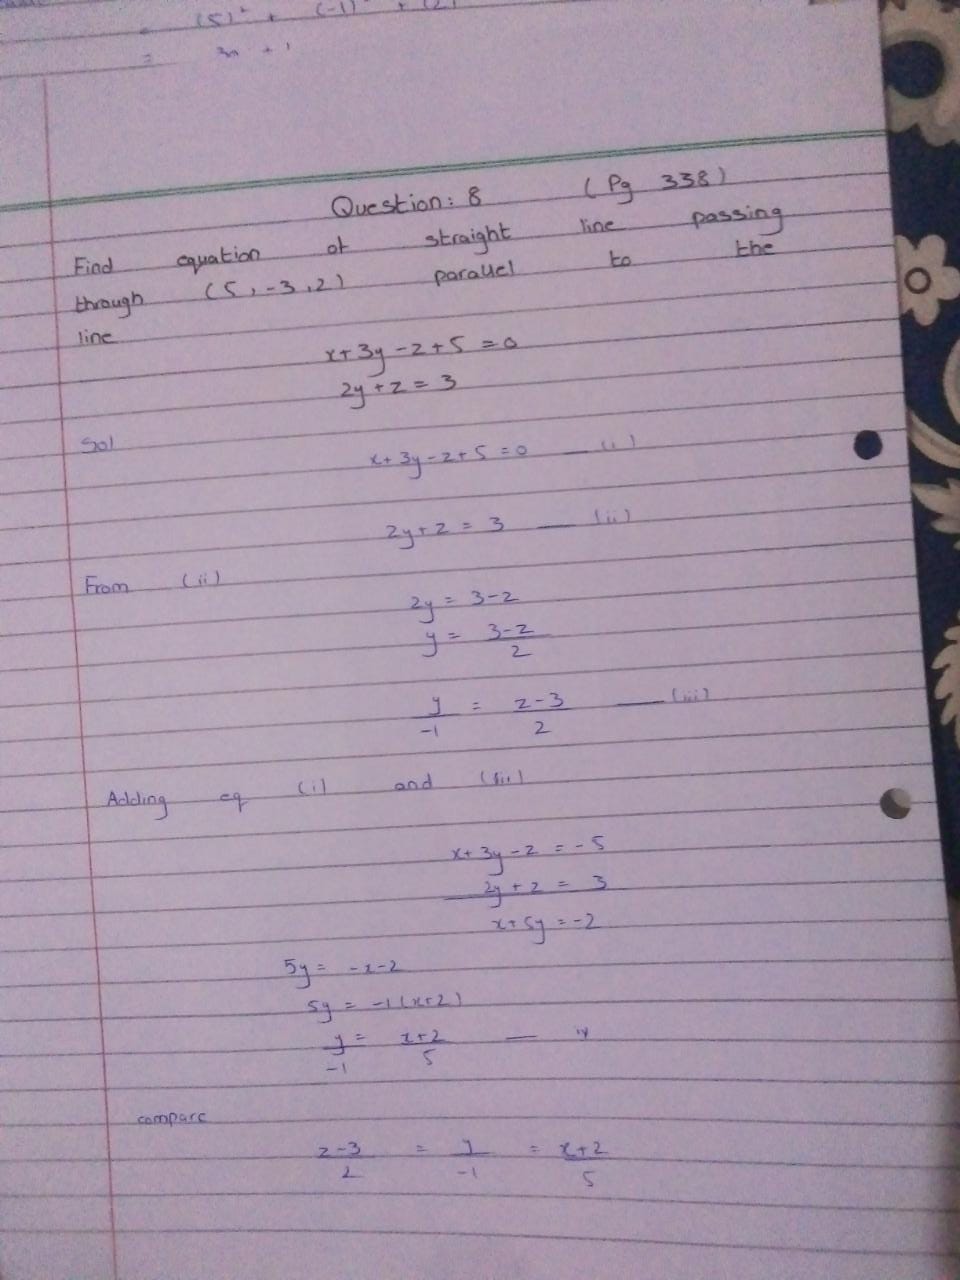 (5)² + (-1) + (2)
= 3m + 1
Question: 8 (Pg 338)
Find equation of straight line passing
through (5, -3, 2) parallel to the
line
x + 3y - z + 5 = 0
2y + z = 3
Sol
x + 3y - z + 5 = 0 — (i)
2y + z = 3 — (ii)
From (ii)
2y = 3 - z
y = 3 - z / 2
y / -1 = z - 3 / 2 — (iii)
Adding eq (i) and (ii)
x + 3y - z = -5
2y + z = 3
x + 5y = -2
5y = -x - 2
5y = -1(x + 2)
y / -1 = x + 2 / 5 — iv
compare
z - 3 / 2 = y / -1 = x + 2 / 5